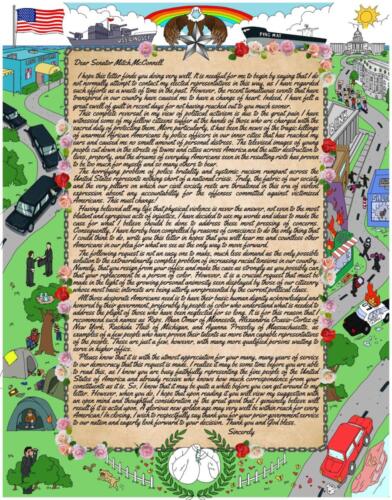 Dear Senator Mitch McConnell
I hope this letter finds you doing very well. It is needful for me to begin by saying that I do
not normally attempt to contact my elected representatives in this way, as I have regarded
such efforts as a waste of time in the past. However, the recent tumultuous events that have
transpired in our country have caused me to have a change of heart. Indeed, I have felt a
great swell of guilt in recent days for not having reached out to you much sooner.
This complete reversal in my view of political activism is due to the great pain I have
witnessed some of my fellow citizens suffer at the hands of the ones who are charged with the
sacred duty of protecting them. More particularly, it has been the wave of the tragic killings
of unarmed African Americans by police officers in our inner cities that has reached my
ears and caused me no small amount of personal distress. The televised images of young
people cut down in the streets of towns and cities across America and the utter destruction to
lives, property, and the dreams of everyday Americans seen in the resulting riots has proven
to be too much for myself and so many others to bear.
The horrifying problem of police brutality and systemic racism rampant across the
United States represents nothing short of a national crisis. Truly, the fabric of our society
and the very pillars on which our civil society rests are threatened in this era of violent
oppression absent any accountability for the offenses committed against victimized
Americans. This must change.
Having believed all my life that physical violence is never the answer, not even to the most
blatant and egregious acts of injustice, I have decided to use my words and ideas to make the
case for what I believe should be done to address these most pressing of concerns.
Consequently, I have hereby been compelled by reasons of conscience to do the only thing that
I could think to do, write you this letter in hopes that you will hear me and countless other
Americans in our plea for what we see as the only way to move forward.
The following request is not an easy one to make, much less demand as the only possible
solution to the extraordinarily complex problem of increasing racial tensions in our country.
Namely, that you resign from your office and make the case as strongly as you possibly can
that your replacement be a person of color. However, it is a crucial request that must be
made in the light of the growing personal animosity seen displayed by those of our citizenry
whose most basic interests are being utterly unrepresented by the current political class.
All those desperate Americans need is to have their basic human dignity acknowledged and
honored by their government, preferably by people of color who understand what is needed to
address the plight of those who have been neglected for so long. It is for this reason that I
recommend such names as Reps. Ilhan Omar of Minnesota, Alexandria Ocasio-Cortez of
New York, Rashida Tlaib of Michigan, and Ayanna Pressley of Massachusetts, as
examples of a few people who have proven their talents as more than capable representatives
of the people. These are just a few, however, with many more qualified persons waiting to
serve in higher office.
Please know that it is with the utmost appreciation for your many, many years of service
to our democracy that this request is made. I realize it may be some time before you are able
to read this, as I know you are busy faithfully representing the fine people of the United
States of America and already receive who knows how much correspondence from your
constituents as it is. So, I know that it may be quite a while before you can get around to my
letter. However, when you do, I hope that upon reading it you will view my suggestion with
an open mind and thoughtful consideration of the great good that I genuinely believe will
result if it is acted upon. A glorious new golden age may very well be within reach for every
American! In closing, I wish to respectfully say thank you for your prior government service
to our nation and eagerly look forward to your decision. Thank you and God bless.
Sincerely